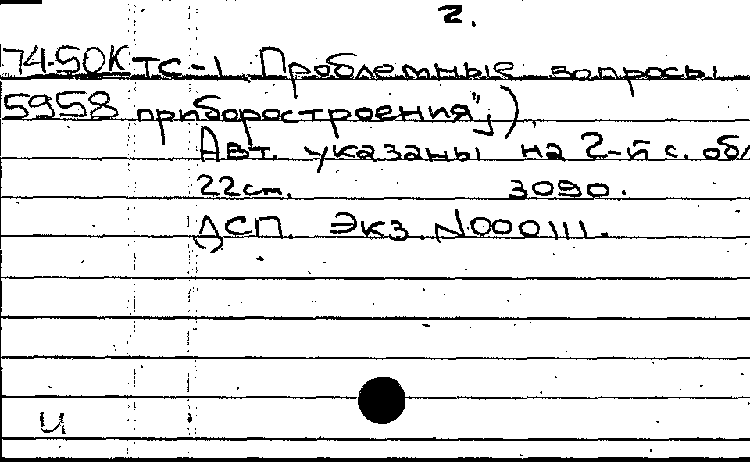 2.
74-50К ТС-1 Проблемные вопросы
5958 приборостроения";).
Авт. указаны на 2-й с. обл
22 см. 3090.
ДСП. Экз. N000111.
и